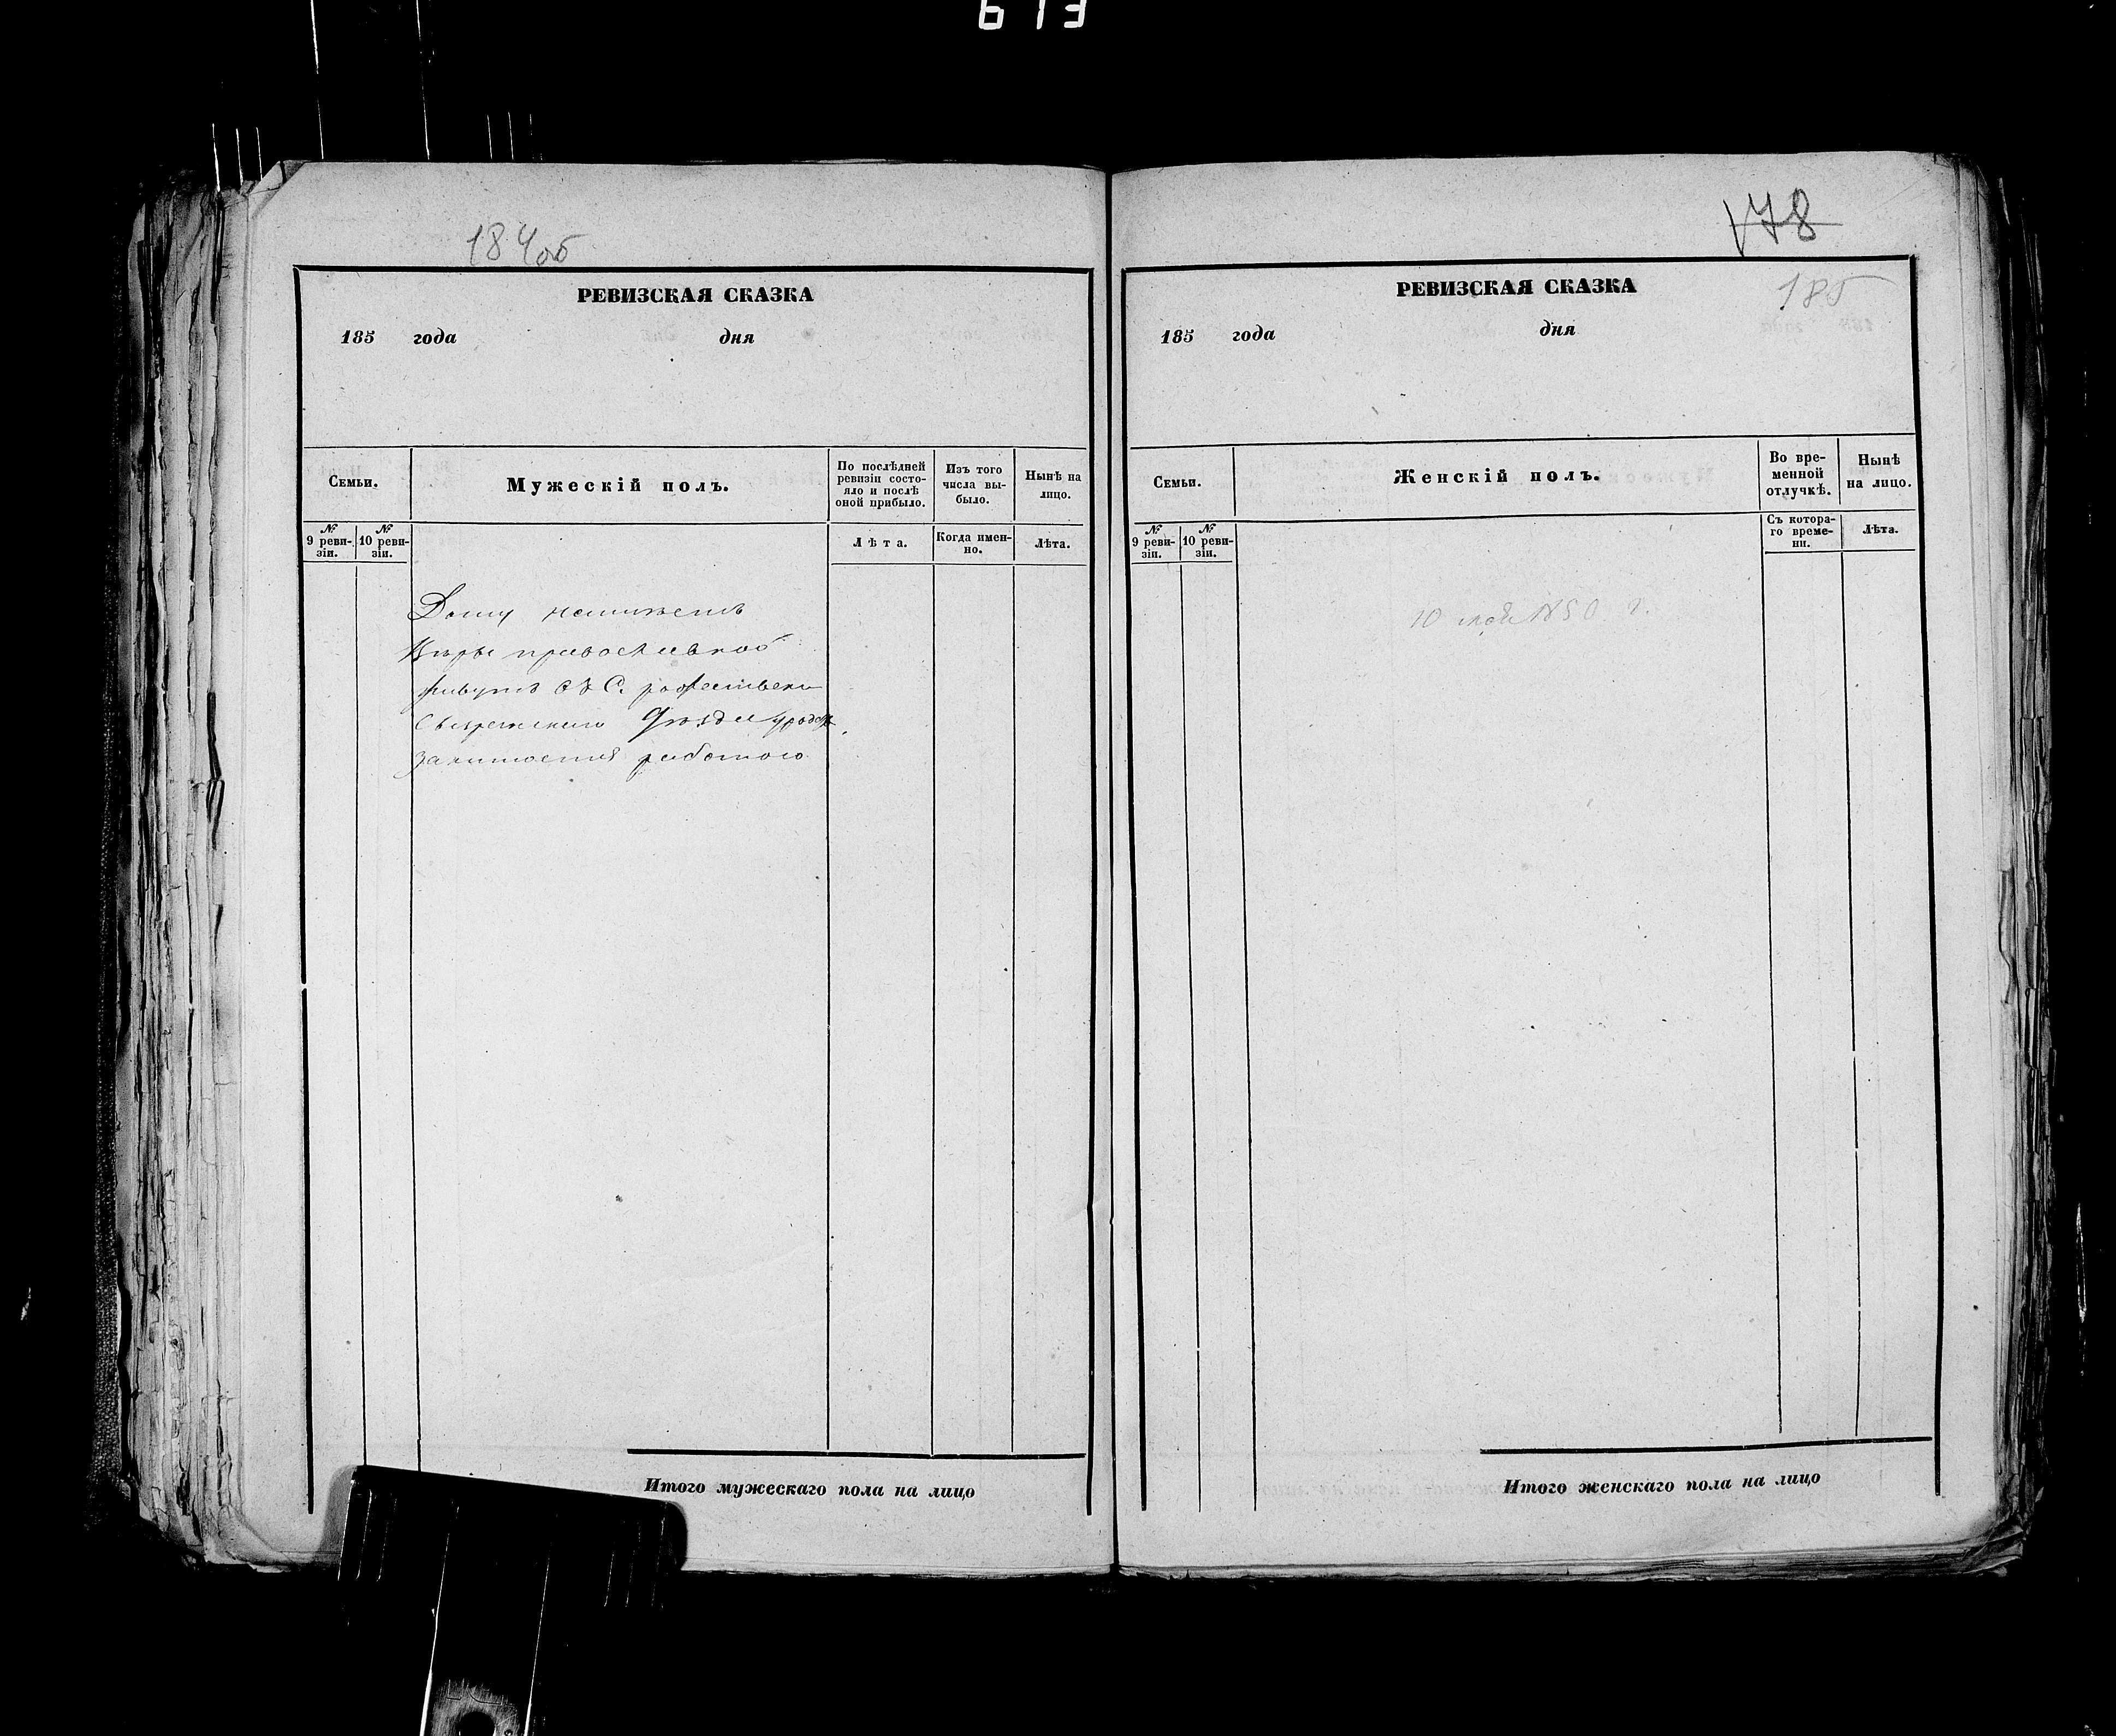 613
184об
РЕВИЗСКАЯ СКАЗКА
185 года дня
Семьи.
Мужескій полъ.
По послѣдней ревизіи состояло и послѣ оной прибыло.
Изъ того числа выбыло.
Нынѣ на лицо.
№ 9 ревизіи.
№ 10 ревизіи.
Лѣта.
Когда именно.
Лѣта.
Дому неимѣетъ
Вѣры православной
живутъ
уѣзда
занимается работою
Итого мужескаго пола на лицо
178
РЕВИЗСКАЯ СКАЗКА
185
185 года дня
Семьи.
Женскій полъ.
Во временной отлучкѣ.
Нынѣ на лицо.
№ 9 ревизіи.
№ 10 ревизіи.
Съ котораго времени.
Лѣта.
10 мая г.
Итого женскаго пола на лицо